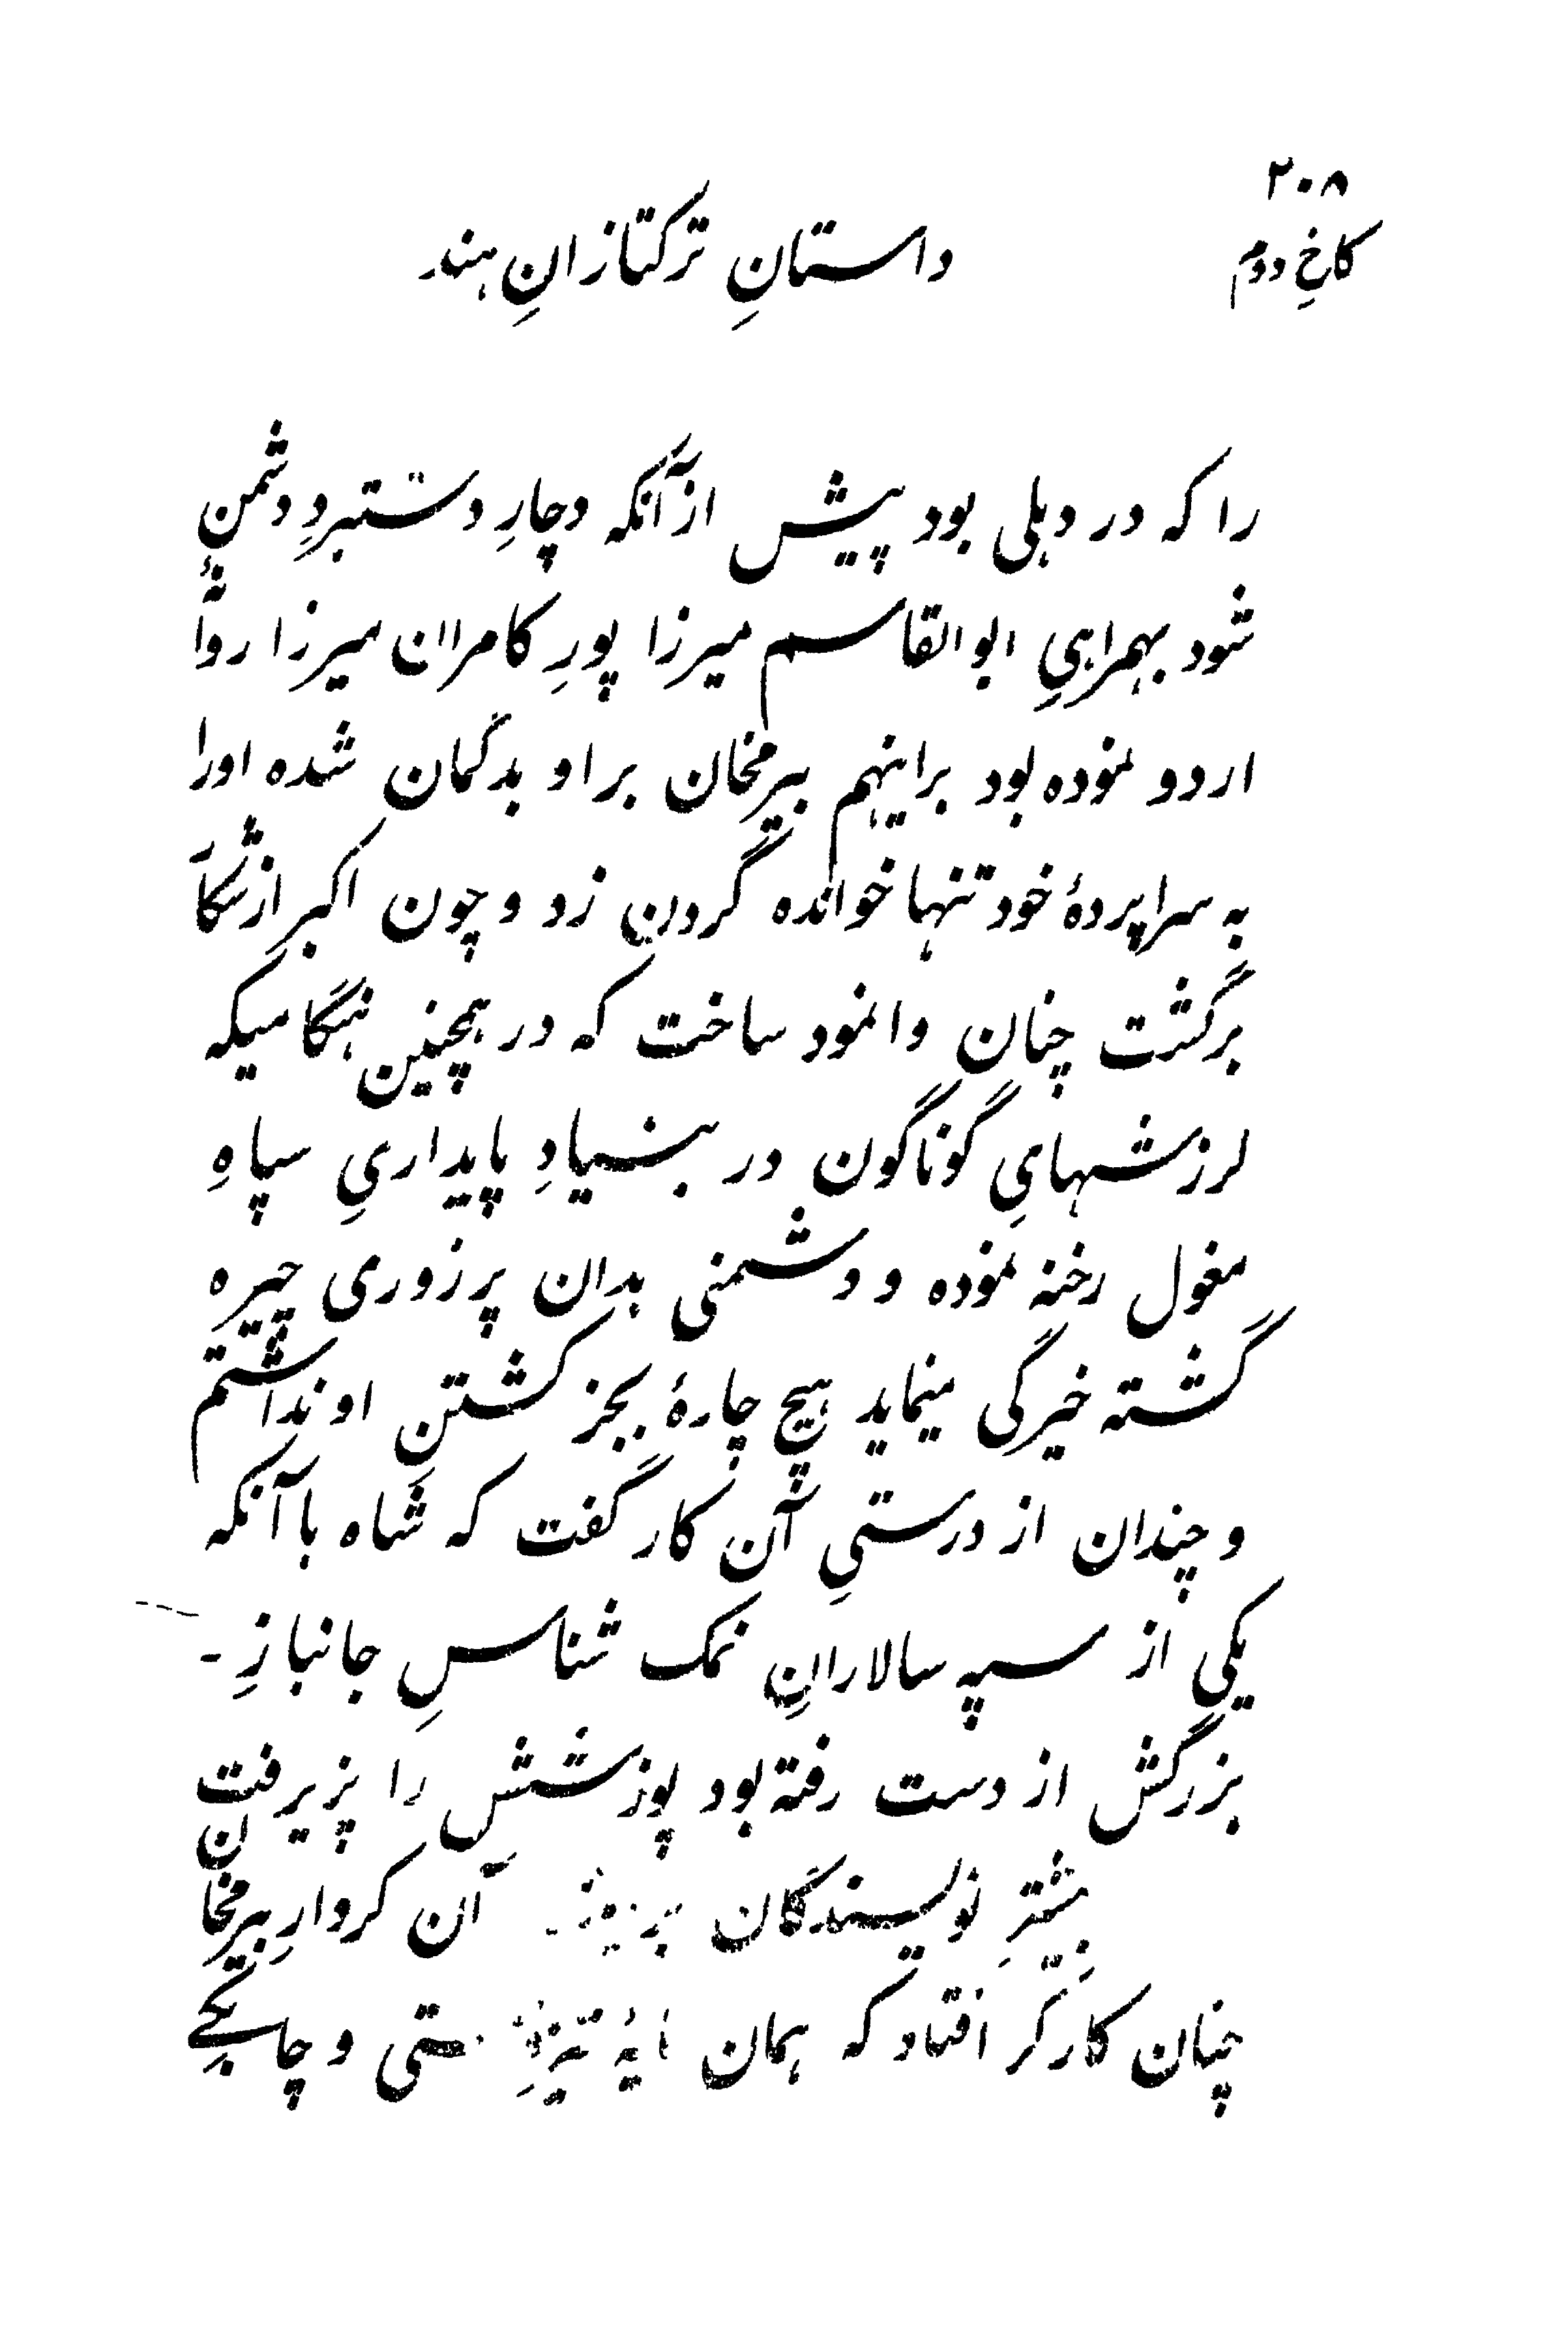 ۲۰۸
کاخِ دوم
داستانِ ترکتازانِ هند
را که در دهلی بود پیش ازآنکه دچارِ دستبردِ دشمن
شود بهمراهیِ ابوالقاسم میرزا پورِ کامران میرزا روانهٔ
اردو نموده بود براینهم بیرمخان بر او بدگمان شده اورا
به سراپردهٔ خود تنها خوانده گردن زد و چون اکبر ازشکار
برگشت چنان وانمود ساخت که در همچنین هنگامیکه
لرزشهایِ گوناگون در بنیادِ پایداریِ سپاهِ
مغول رخنه نموده و دشمنی بدان پرزوری چیره
گشته خیرگی مینماید هیچ چارهٔ بجز کشتنِ او نداشتم
و چندان از درستیِ آن کار گفت که شاه باآنکه
یکی از سپه سالارانِ نمک شناسِ جانبازِ -
بزرگش از دست رفته بود پوزشش را پزیرفت
بیشترِ نویسندگان آن کردارِ بیرمخان
چنان کارگر افتاد که همان و چابکیِ